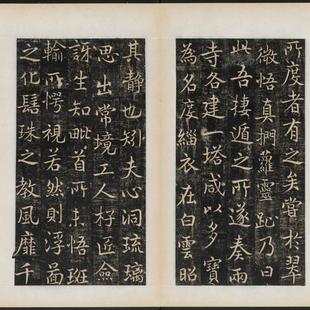 所度者有之矣嘗於翠
微悟真捫蘿靈趾乃曰
此吾棲遁之所遂奏兩
寺各建一塔咸以多寶
為名度緇衣在白雲昭
其靜也矧夫心洞琉璃
思出常境工人杍匠僉
訝生知毗首所未悟班
輸所愕視若然則浮啚
之化髻珠之教風靡千